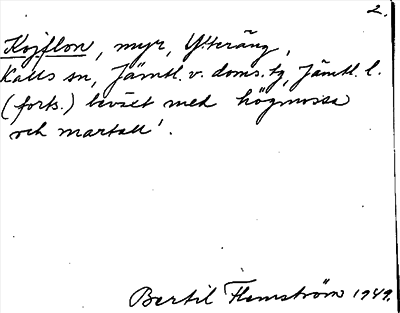 2.
Kojflon, myr, Ytteräng,
Kalls sn, Jämtl. v. doms. tg, Jämtl. l.
(forts.) beväxt med högmossa
och martall'.
Bertil Flemström 1949.